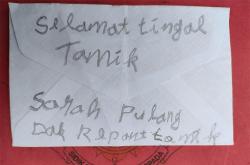 Selamat tingal
Tamik
Sarah Pulang
Dak Repout tamik